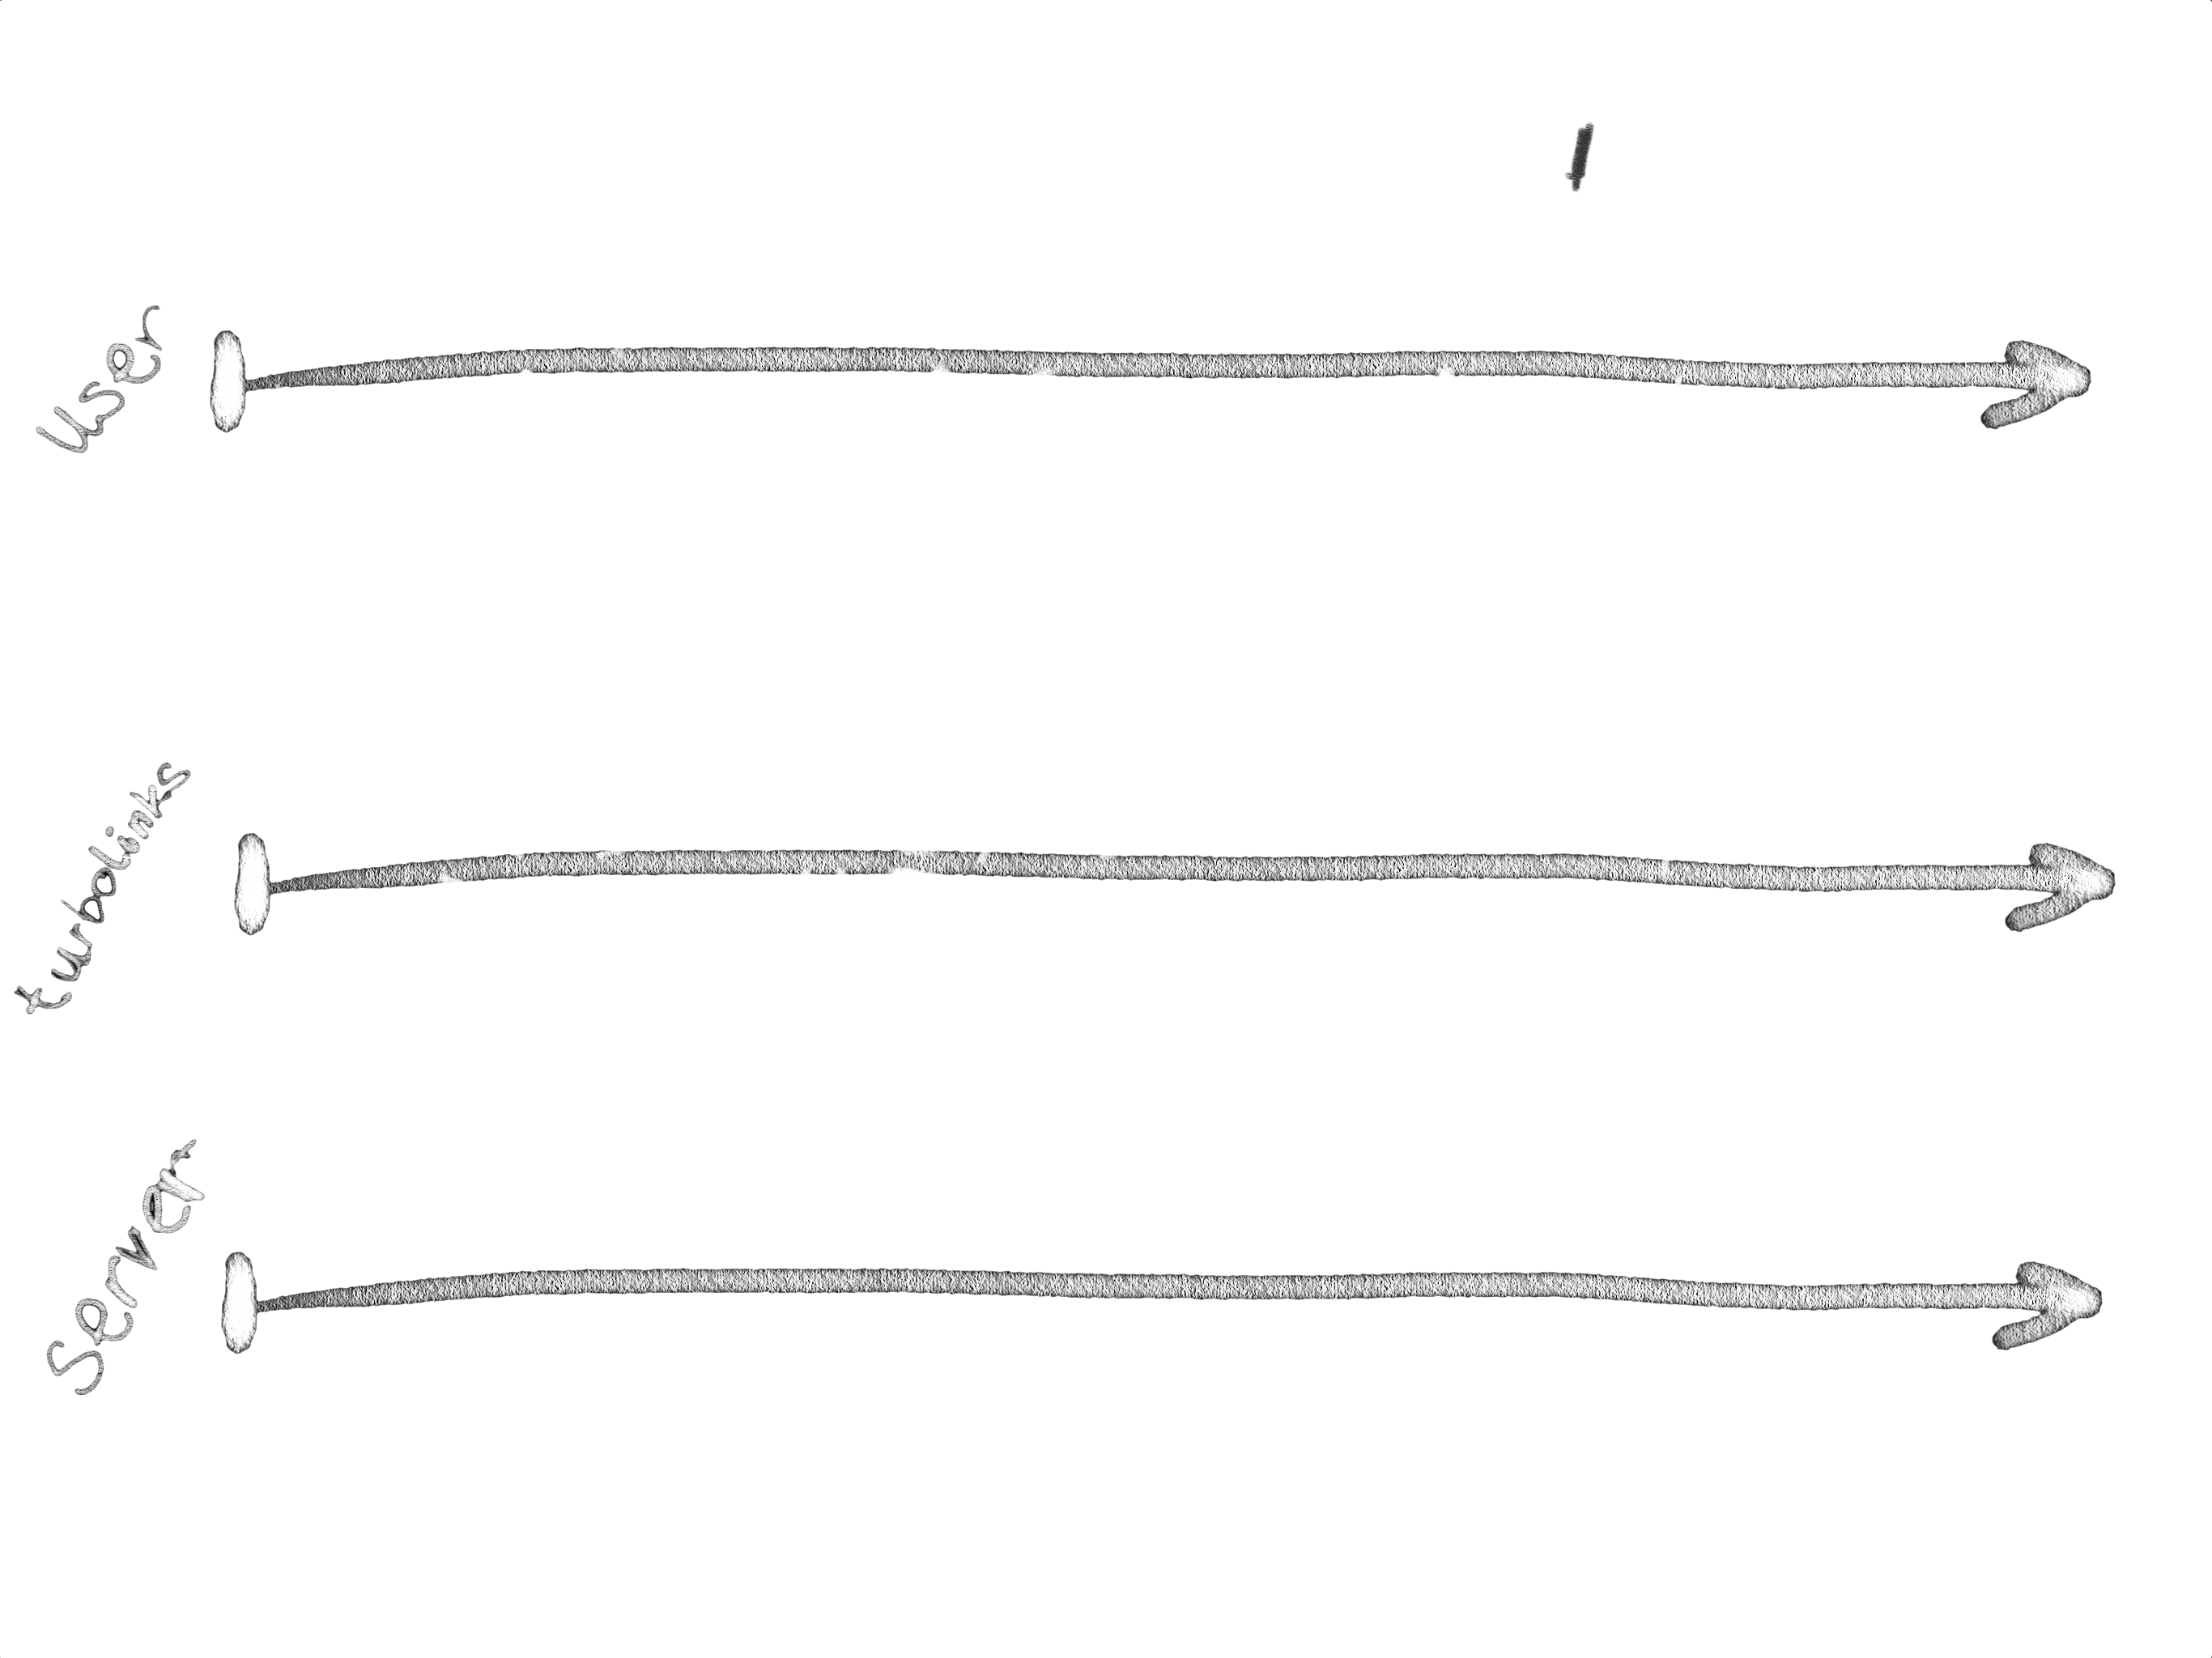 User
turbolinks
Server